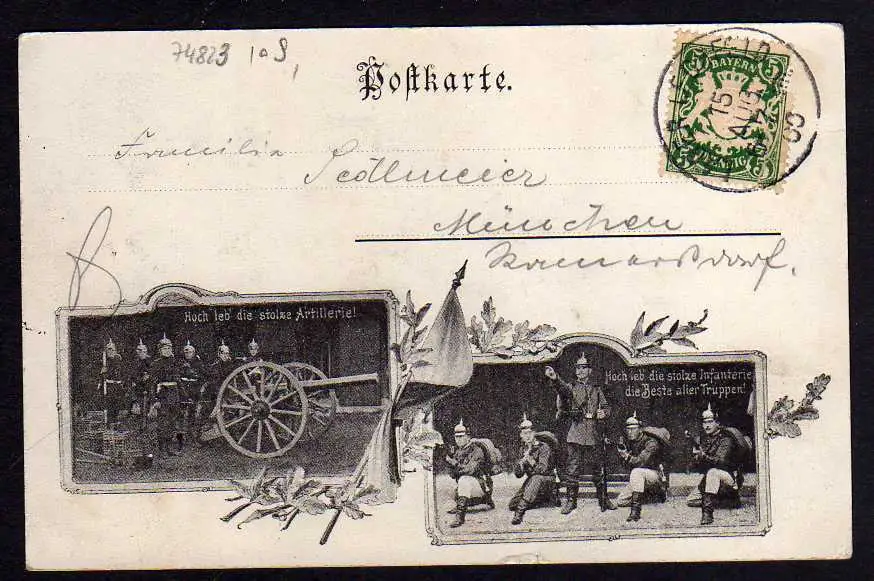 74823
Postkarte.
BAYERN
5 5
PFENNIG
5 5
15
AUG
Familie Sedlmeier
München
Ramersdorf.
Hoch leb' die stolze Artillerie!
Hoch leb die stolze Infanterie
die Beste aller Truppen!